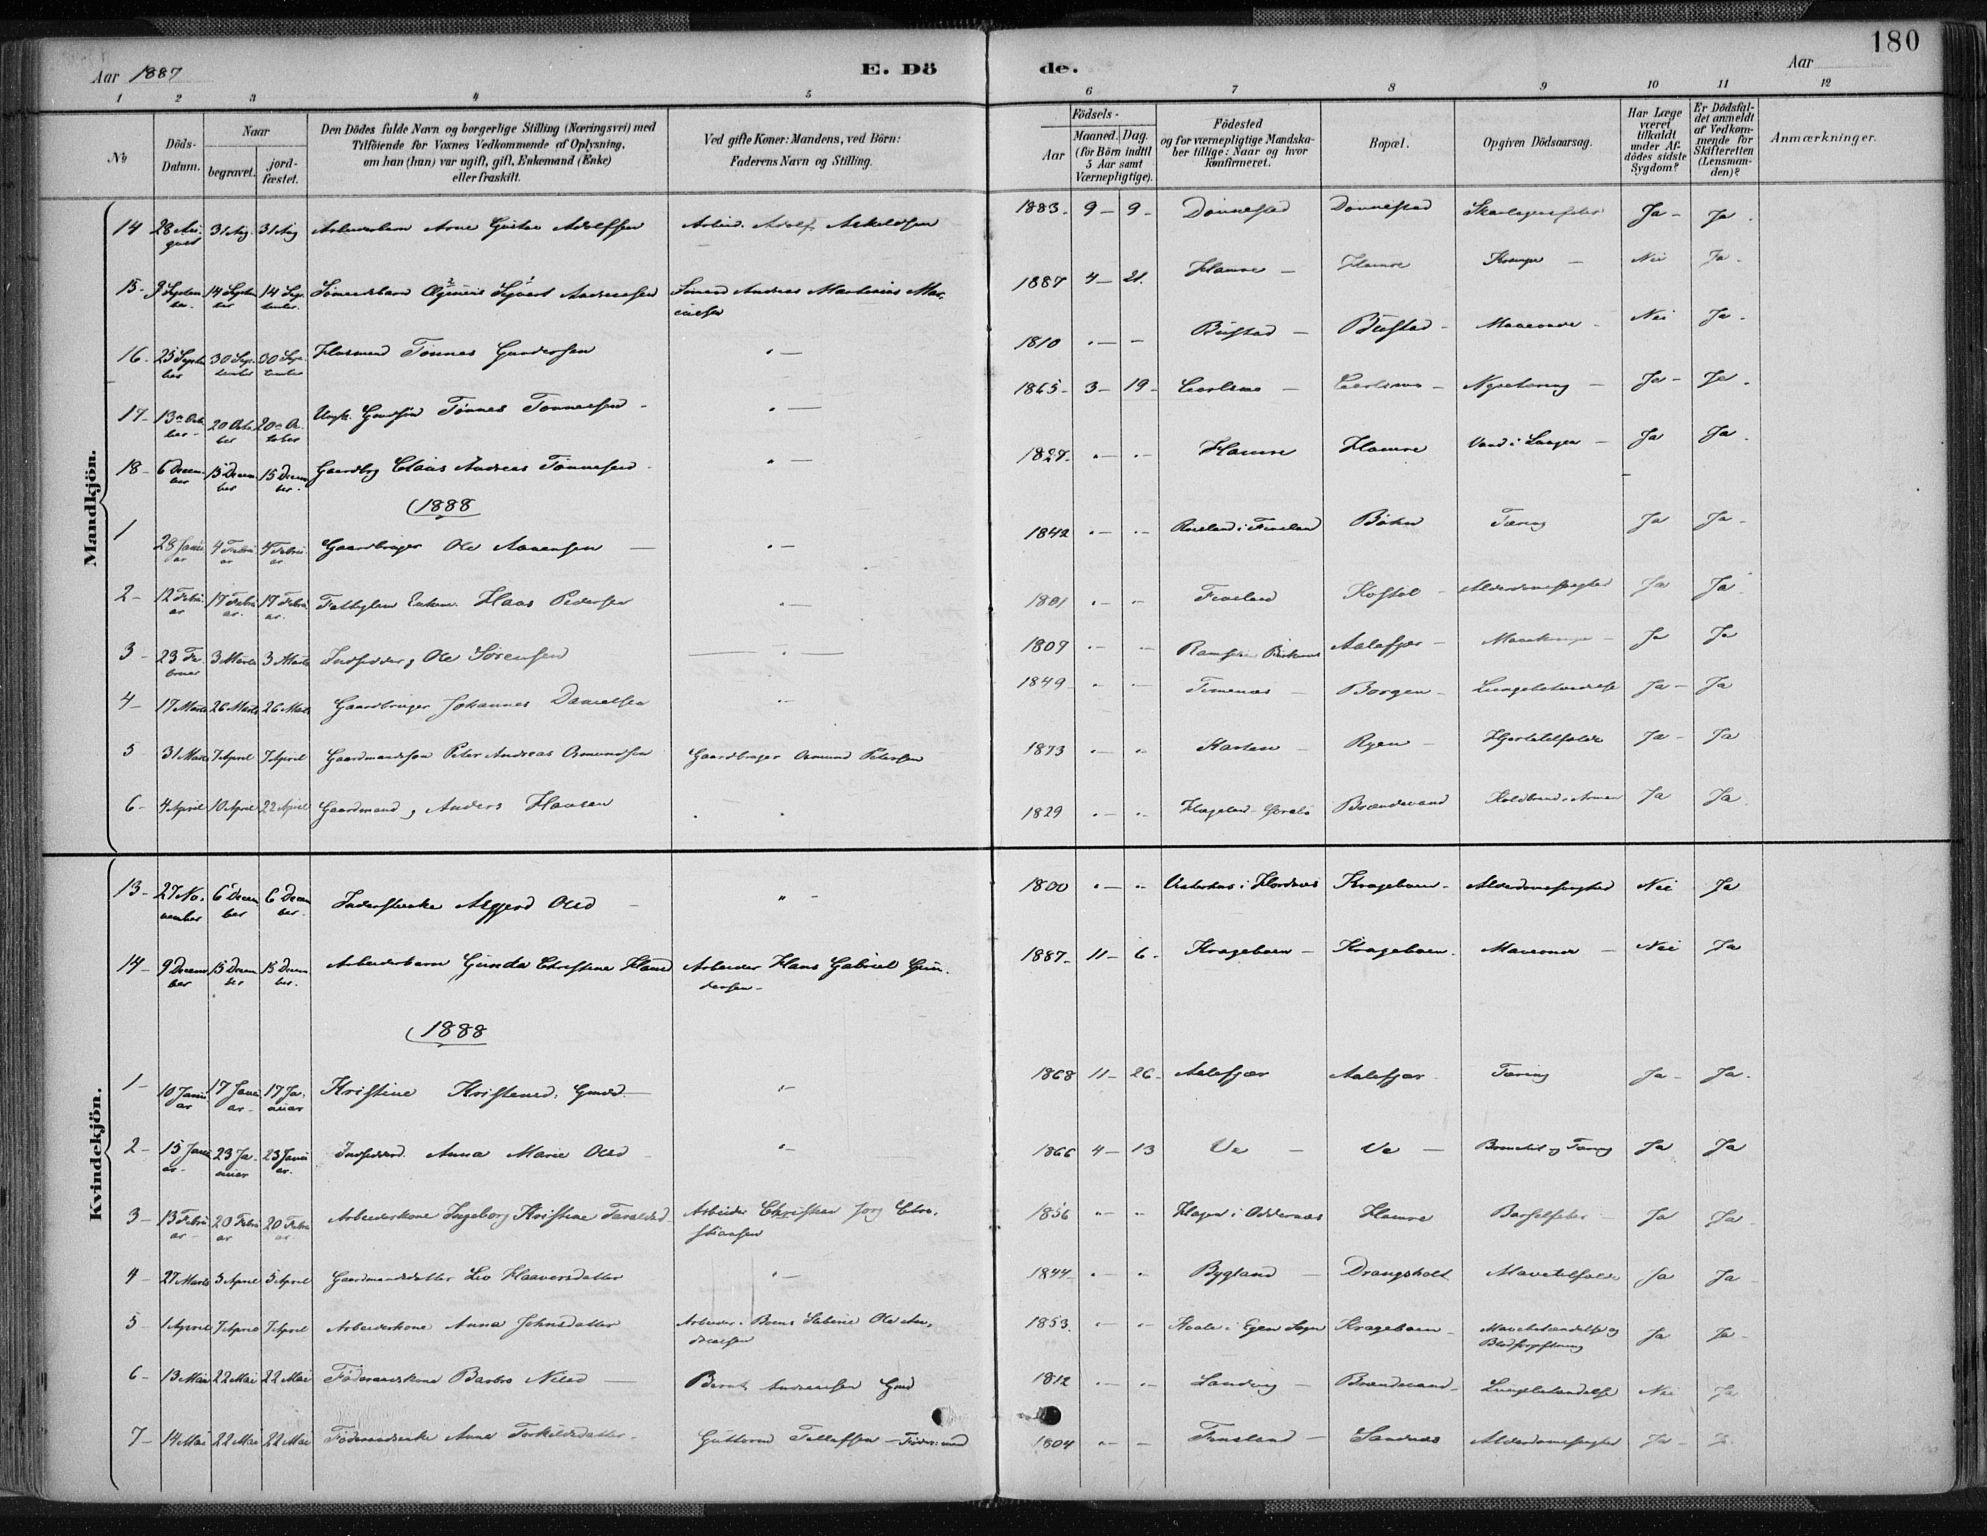 180
Aar 1887
E. Dö
de.
Aar
1 2 3 4 5 6 7 8 9 10 11 12
No
Döds-Datum.
Naar
begravet.
jord-fæstet.
Den Dödes fulde Navn og borgerlige Stilling (Næringsvei) med
Tilföiende for Voxnes Vedkommende af Oplysning,
om han (hun) var ugift, gift, Enkemand (Enke)
eller fraskilt.
Ved gifte Koner: Mandens, ved Börn:
Faderens Navn og Stilling.
Födsels-
Aar
Maaned. Dag.
(for Börn indtil
5 Aar samt
Værnepligtige).
Födested
og for værnepligtige Mandska-
ber tillige: Naar og hvor
konfirmeret.
Bopæl.
Opgiven Dödsaarsag.
Har Læge
været
tilkaldt
under Af-
dödes sidste
Sygdom?
Er Dödsfal-
det anmeldt
af Vedkom-
mende for
Skifteretten
(Lensman-
den)?
Anmærkninger.
Mandkjön.
14 28 August 31 Aug 31 Aug Arbeiderbarn Arne Gustav Adolfsen Arbeid. Adolf Askildsen 1883 - 9 - 9 - Dønnestad Dønnestad Skarlagensfeber Ja - Ja.
15 - 9 September 14 September 14 September Sømandsbarn Sigvart Andreassen Sømand Andreas Martinius 1887 4 - 21. Hamre - Hamre Krampe - Nei Ja.
16 - 25 September 30 September 30 September Husmand Tønnes Gundersen " - 1810 " - - Bustad - Bustad - Nei Ja.
17 - 13 October 20 October 20 October Ungk. Tønnes Tønnesen - " - 1865 - 3 - 19 - - - Ja - Ja.
18 - 6 December 15 December 15 December Gaardbrg Claus Andreas Tønnesen - " - 1827 - " - " - Hamre Hamre Vand i Lungen - Ja Ja.
1888
1 28 Januar 4 Februar 4 Februar Gaardbruger Ole Aanensen - " - 1842 " - " - i Finsland Bøhn Tæring Ja Ja -
2 - 12 Februar 17 Februar 17 Februar Fattiglem Enkem. Haas Pedersen " - 1801 " - " - Finsland Kostøl - Alderdomssvaghed Ja Ja.
3 - 23 Februar 3 Marts 3 Marts Indsidder, Ole Sørensen " - 1809 " - " - Aalefjær - - Ja Ja
4 - 17 Marts 26 Marts 26 Marts Gaardbruger Johannes Danielsen " - 1849 " - - Timenes - Borgen - Lungebetændelse Ja - Ja
5 31 Marts 7 April 7 April Gaardmandssøn Peter Andreas Osmundsen Gaardbruger Osmund Petersen 1873 " - " Ryen - Hjertetilfælde Ja - Ja
6 - 4 April 10 April 22 April Gaardmand, Anders Hansen " " 1829 " - " - Brændevand Koldbrand i Armen Ja Ja.
Kvindekjön.
13 - 27 November 6 December 6 December Asgjerd Olsd - " - 1800 " - " - Krageboen - Alderdomssvaghed Nei Ja
14 - 9 December 15 December 15 December Arbeiderbarn Gunda Christine Hansd Arbeider Hans Gabriel Gundersen - 1887 - 11 - 6 - Krageboen - Krageboen. - Nei Ja
1888
1 - 10 Januar 17 Januar 17 Januar Kristine Kristensd. Gmd - " - 1868 11 - 26 - Aalefjær Aalefjær - Tæring Ja - Ja.
2 - 15 Januar 23 Januar 23 Januar Anna Marie Olsd - " - 1866 4 - 13 Ve - Ve - og Tæring Ja Ja
3 - 13 Februar 20 Februar 20 Februar Arbeiderkone Ingeborg Kristine Taraldsd - Arbeider Christen Jørg Christiansen 1856 " - " Hagen i Oddernes Hamre Barselfeber - Ja Ja -
4 - 27 Marts 5 April 5 April Gaardmandsdatter Liv Haaversdatter " - 1844 - " - " - Bygland - Drangsholt Mavetilfælde Ja Ja -
5 1 April 7 April 7 April Arbeiderkone Anna Johnsdatter Arbeider Ole Andreassen 1853. " - - i Egen Sogn Krageboen - Mavebetændelse og Blodforgiftning Ja Ja -
6 - 13 Mai 22 Mai 22 Mai Føderaadskone Barbro Nilsd - Bernt Andreassen Gmd 1812 " - " - Brændevand - Lungebetændelse Nei Ja
7 - 14 Mai 22 Mai 22 Mai Føderaadsenke Anne Torkildsdatter - Guttorm Tellefsen - 1804 " - - Finsland - Sandnes Alderdomssvaghed Ja - Ja